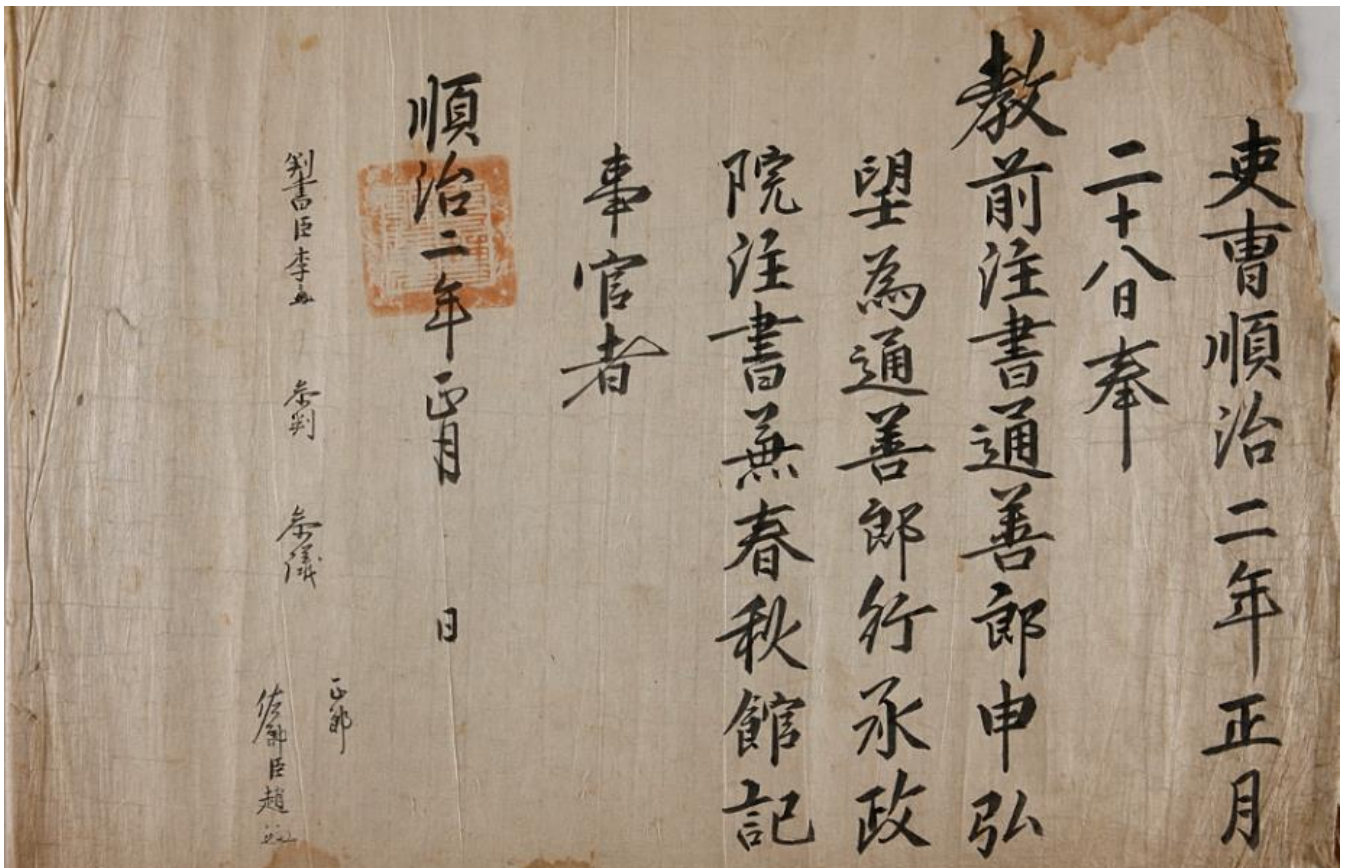 吏曹順治二年正月
二十八日奉
教前注書通善郎申弘
望為通善郎行承政
院注書兼春秋館記
事官者
順治二年正月　日
判書臣李　参判　参議
正郎
佐郎臣趙